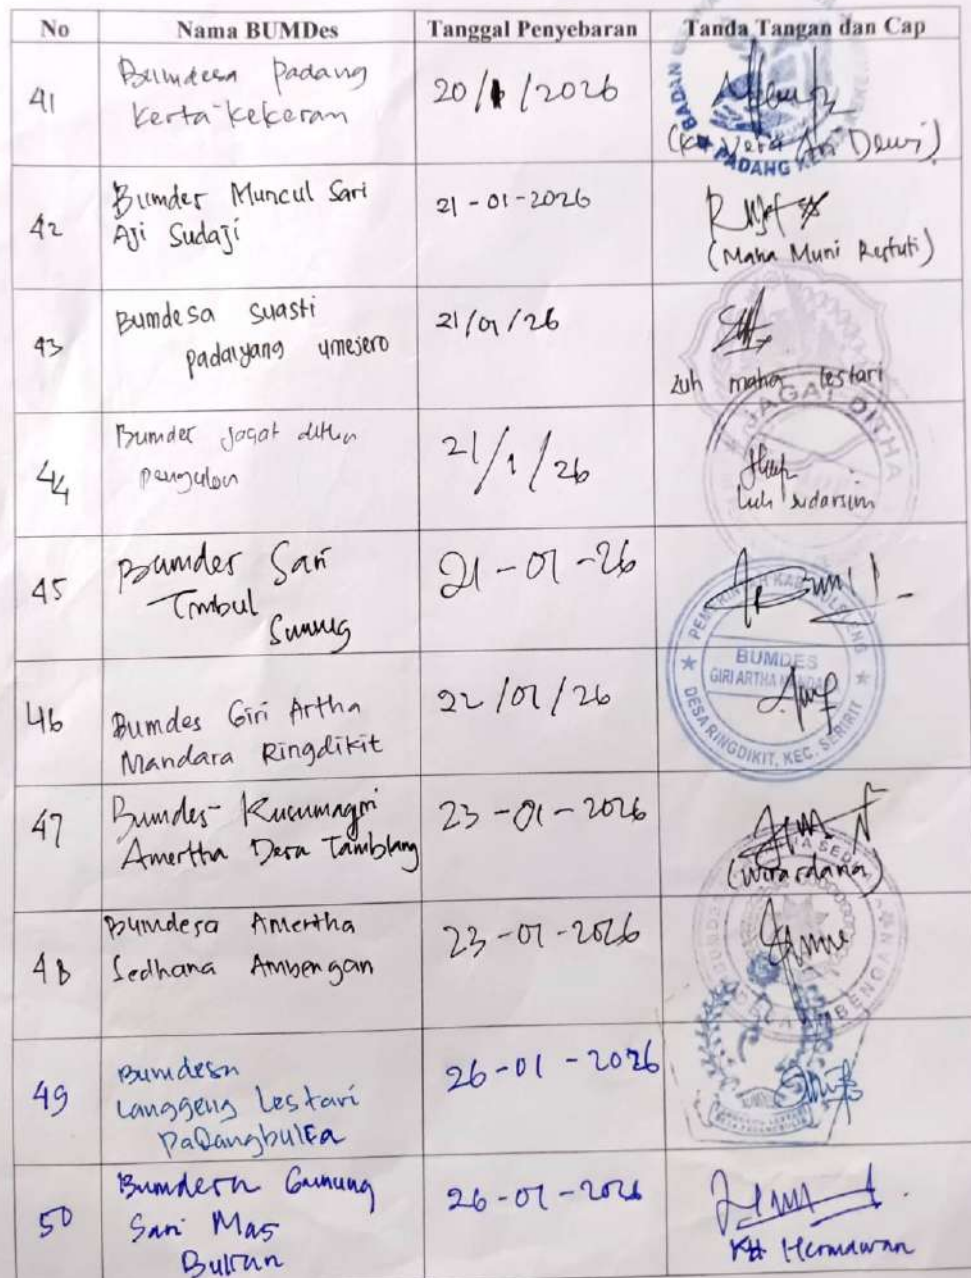 No Nama BUMDes Tanggal Penyebaran Tanda Tangan dan Cap
41 Bumdesa Padang
Kerta Kekeran
20/1/2026
Dewi)
PADANG
BADAN
42 Bumdes Muncul Sari
Aji Sudaji
21-01-2026
(Maha Muni Restuti)
43 Bumdesa Suasti
padayang umejero
21/01/26
Luh maha lestari
44 Bumdes Jagat ditha
pengulon
21/1/26
JAGAT DITHA
Luh sudarsini
45 Bumdes Sari
Timbul
21-01-26
46 Bumdes Giri Artha
Mandara Ringdikit
22/01/26
BUMDES
GIRI ARTHA
DESA RINGDIKIT, KEC. SERIRIT
47 Bumdes Kusumagiri
Amertha Desa Tamblang
23-01-2026
(Wirardana)
48 Bumdesa Amertha
Sedhana Ambengan
23-01-2026
49 Bumdesa
Langgeng Lestari
Padangbulia
26-01-2026
50 Bumdesa Gunung
Sari Mas
26-01-2026
Hermawan